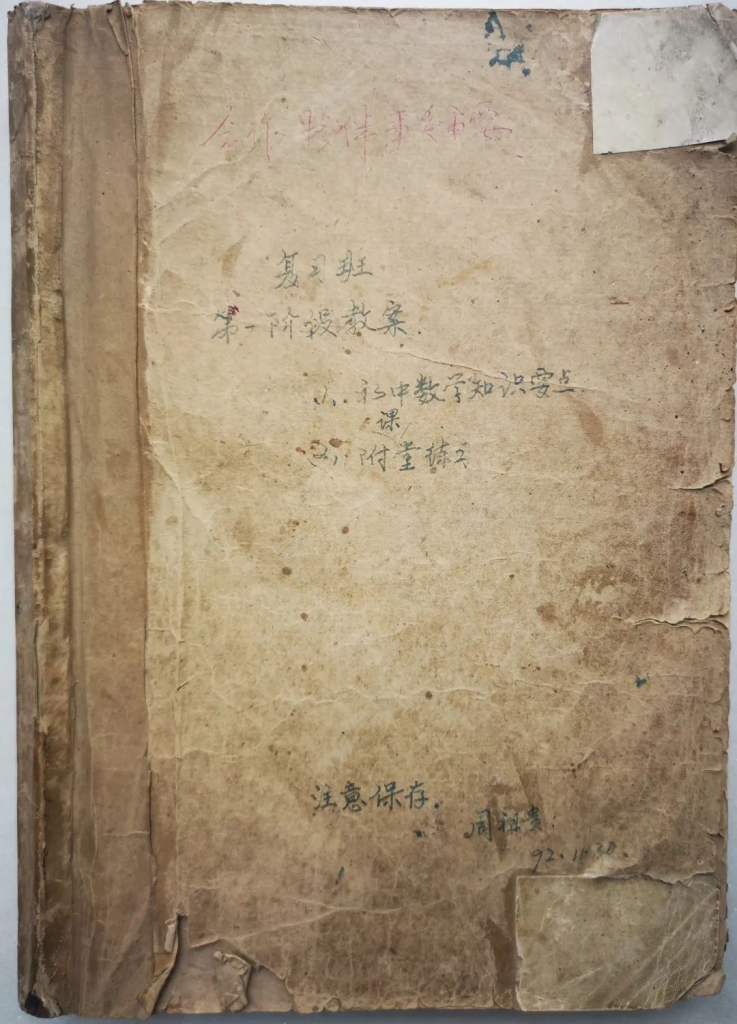 复习班
第一阶段教案.
(1). 初中数学知识要点.
课
(2). 附堂练习
注意保存.
周祖贵.
92.11.30.